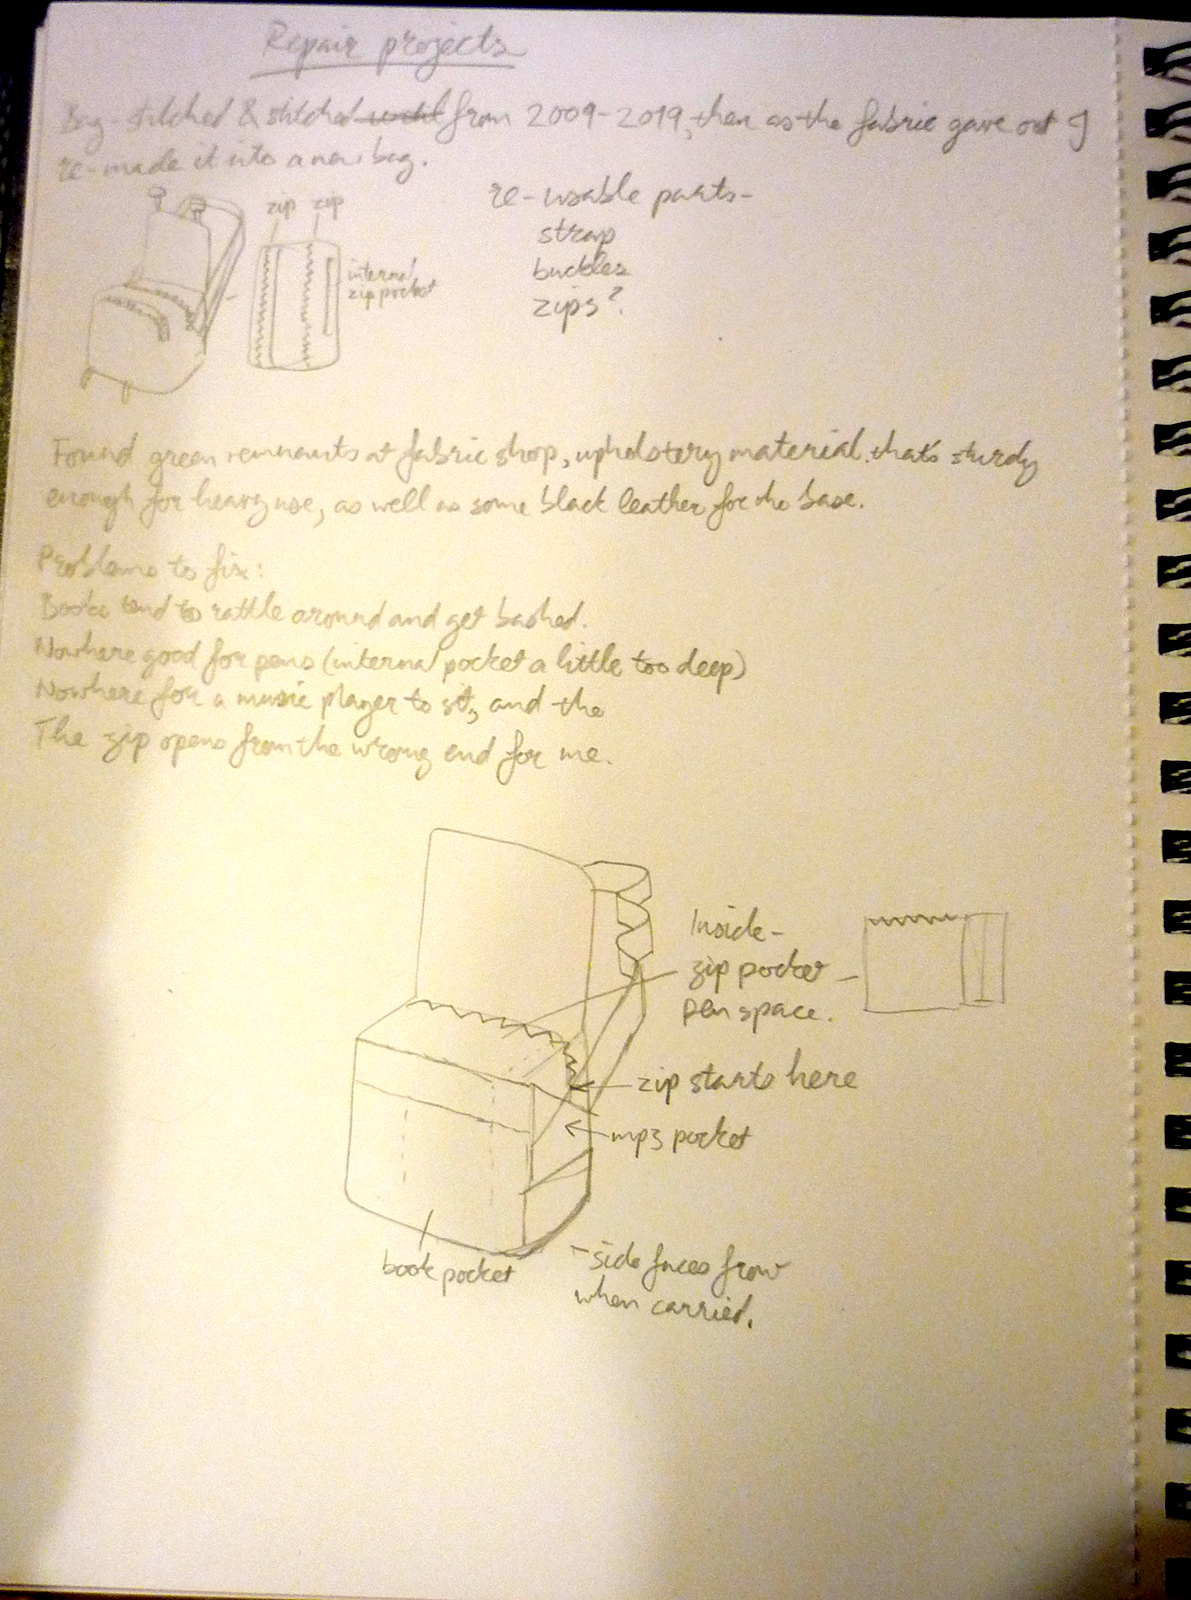 Repair projects
Bag - stitched & stitched until from 2009-2019, then as the fabric gave out I
re-made it into a new bag.
zip zip
internal
zip pocket
re-usable parts-
strap
buckles
zips?
Found green remnants at fabric shop, upholstery material that's sturdy
enough for heavy use, as well as some black leather for the base.
Problems to fix:
Books tend to rattle around and get bashed.
Nowhere good for pens (internal pocket a little too deep)
Nowhere for a music player to sit, and the
The zip opens from the wrong end for me.
Inside-
zip pocket -
pen space.
zip starts here
mp3 pocket
book pocket
- side faces front
when carried.